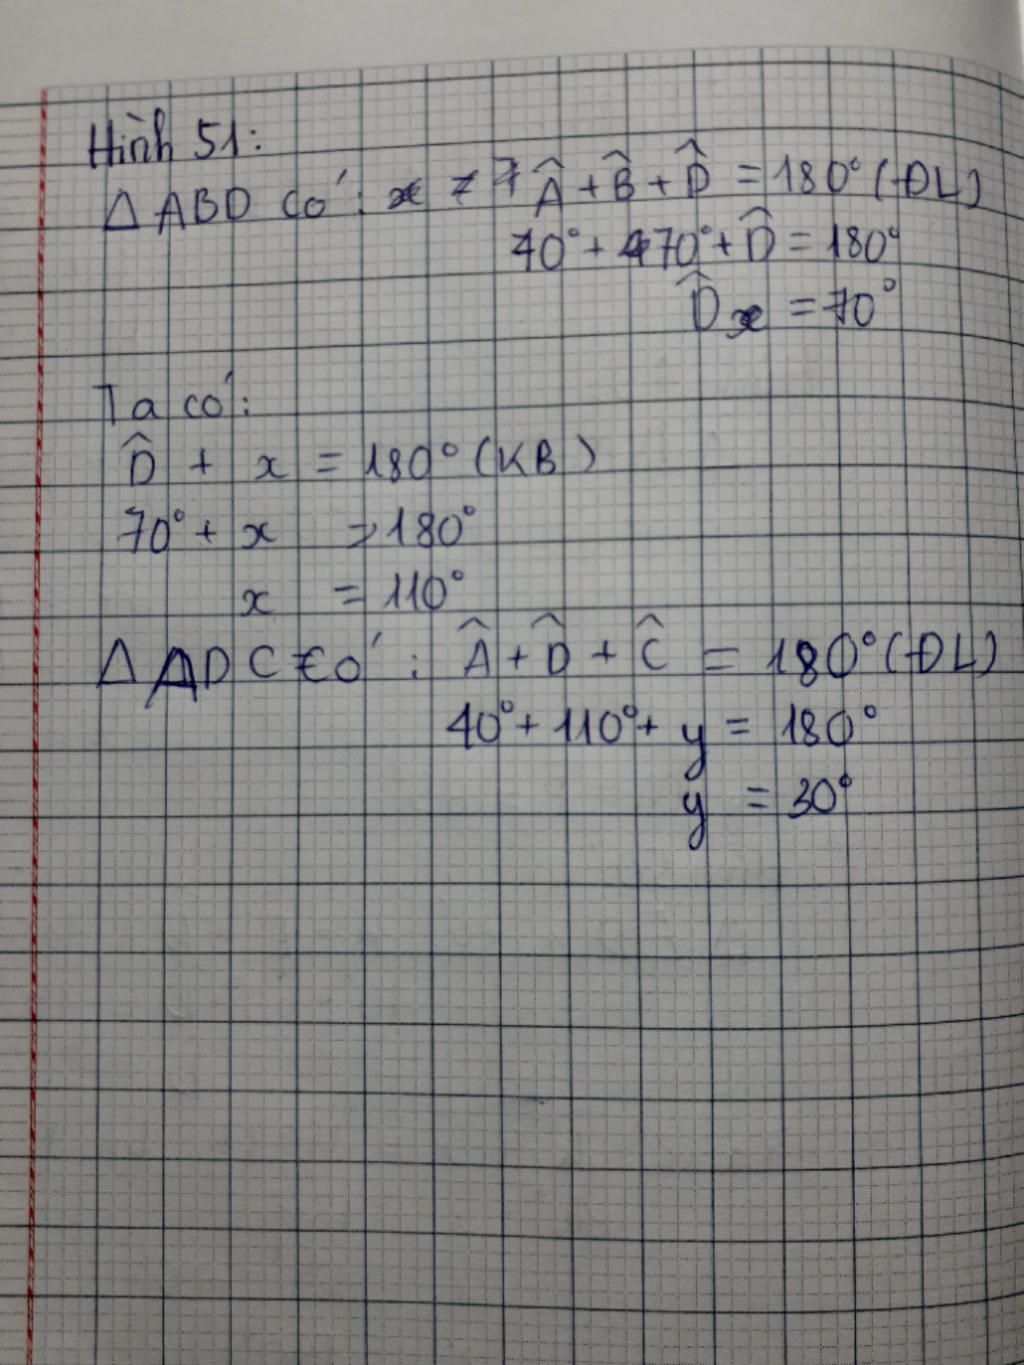 Hình 51:
△ ABD có: Â + B̂ + D̂ = 180° (ĐL)
40° + 70° + D̂ = 180°
D̂ = 70°
Ta có:
D̂ + x = 180° (KB)
70° + x = 180°
x = 110°
△ ADC có: Â + D̂ + Ĉ = 180° (ĐL)
40° + 110° + y = 180°
y = 30°